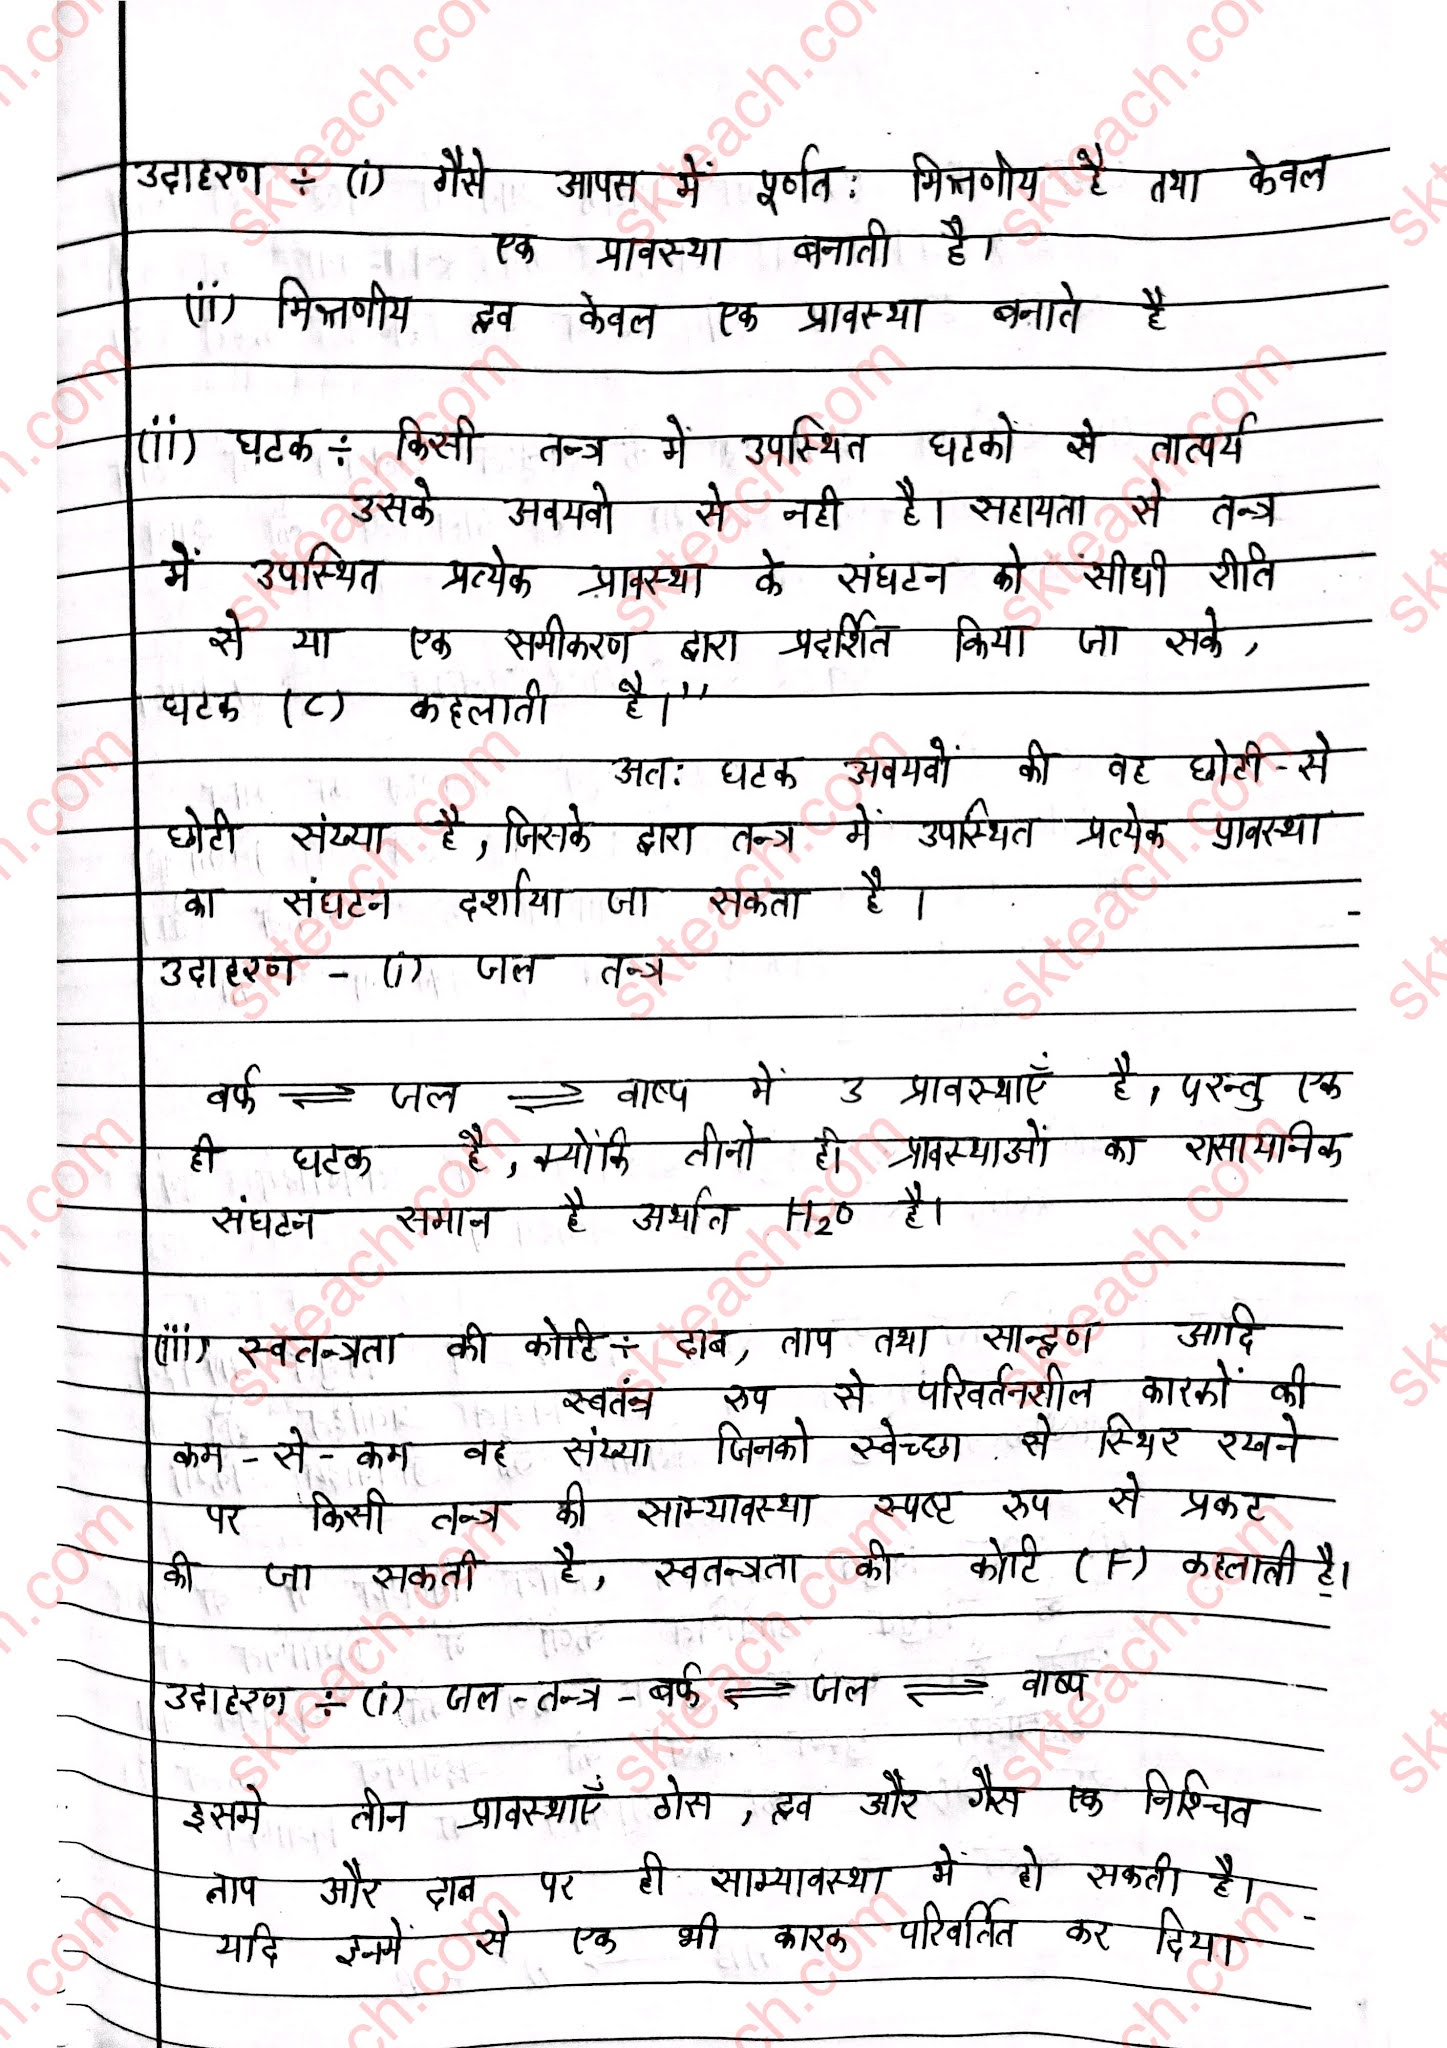 उदाहरण ÷ (i) गैसे आपस में पूर्णत: मिश्रणीय है तथा केवल
एक प्रावस्था बनाती है।
(ii) मिश्रणीय द्रव केवल एक प्रावस्था बनाते है
(ii) घटक ÷ किसी तन्त्र में उपस्थित घटकों से तात्पर्य
उसके अवयवो से नही है। सहायता से तन्त्र
में उपस्थित प्रत्येक प्रावस्था के संघटन को सीधी रीति
से या एक समीकरण द्वारा प्रदर्शित किया जा सके,
घटक (C) कहलाती है।"
अत: घटक अवयवों की वह छोटी-से
छोटी संख्या है, जिसके द्वारा तन्त्र में उपस्थित प्रत्येक प्रावस्था
का संघटन दर्शाया जा सकता है।
उदाहरण - (i) जल तन्त्र
बर्फ ⇌ जल ⇌ वाष्प में 3 प्रावस्थाएँ है, परन्तु एक
ही घटक है, क्योंकि तीनो ही प्रावस्थाओं का रासायनिक
संघटन समान है अर्थात H2O है।
(iii) स्वतन्त्रता की कोटि ÷ दाब, ताप तथा सान्द्रण आदि
स्वतंत्र रुप से परिवर्तनशील कारकों की
कम-से-कम वह संख्या जिनको स्वेच्छा से स्थिर रखने
पर किसी तन्त्र की साम्यावस्था स्पष्ट रुप से प्रकट
की जा सकती है, स्वतन्त्रता की कोटि (F) कहलाती है।
उदाहरण ÷ (i) जल-तन्त्र-बर्फ ⇌ जल ⇌ वाष्प
इसमे तीन प्रावस्थाएँ ठोस, द्रव और गैस एक निश्चित
ताप और दाब पर ही साम्यावस्था में हो सकती है।
यदि इनमें से एक भी कारक परिवर्तित कर दिया
skteach.com